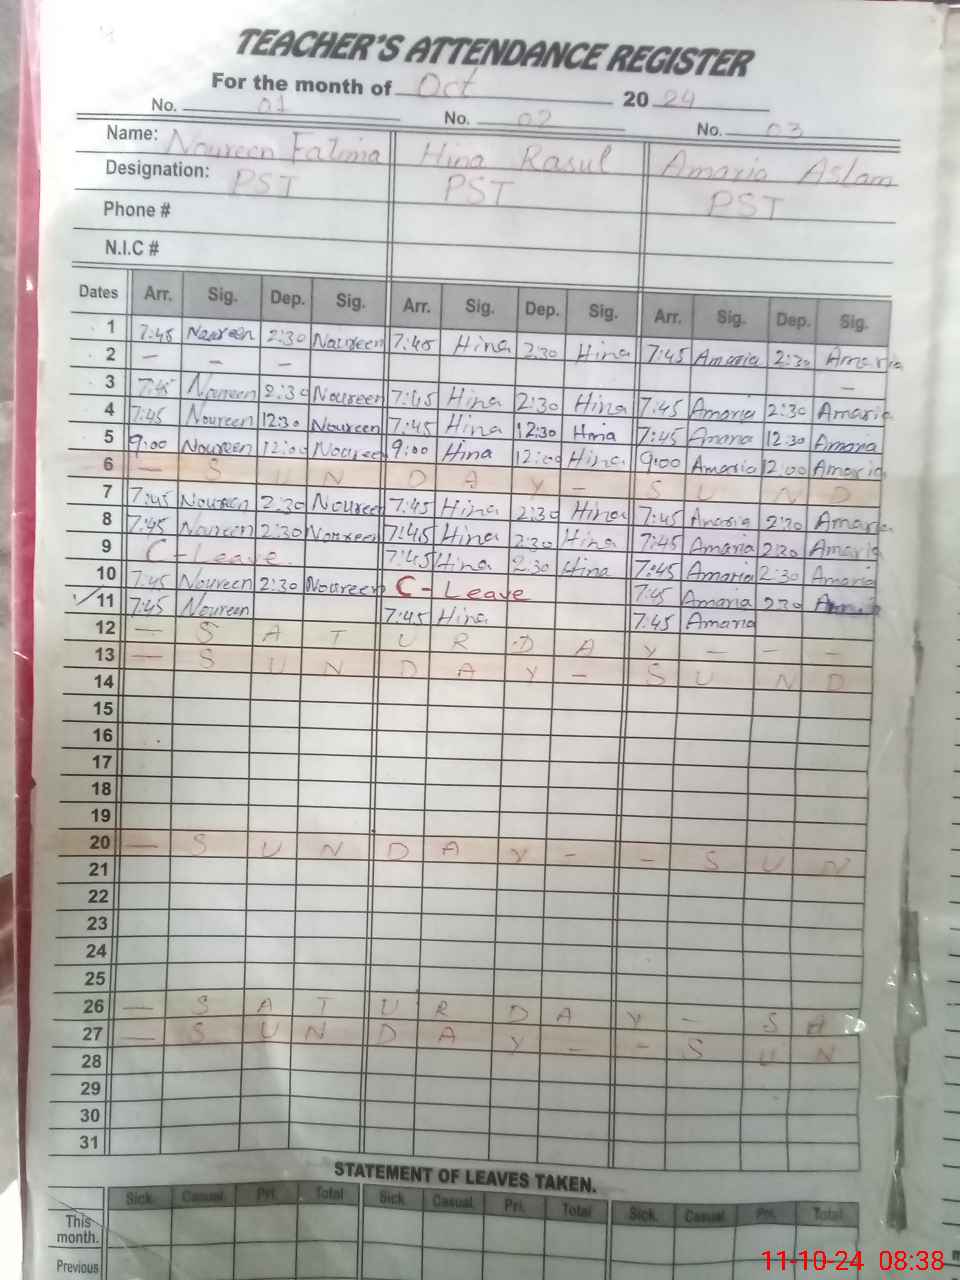 TEACHER'S ATTENDANCE REGISTER
For the month of Oct 2024
No. 01 No. 02 No. 03
Name: Noureen Fatima Hina Rasul Amaria Aslam
Designation: PST PST PST
Phone #
N.I.C #
Dates Arr. Sig. Dep. Sig. Arr. Sig. Dep. Sig. Arr. Sig. Dep. Sig.
1 7:45 Noureen 2:30 Noureen 7:45 Hina 2:30 Hina 7:45 Amaria 2:30 Amaria
2 — — — —
3 7:45 Noureen 2:30 Noureen 7:45 Hina 2:30 Hina 7:45 Amaria 2:30 Amaria
4 7:45 Noureen 12:30 Noureen 7:45 Hina 12:30 Hina 7:45 Amaria 12:30 Amaria
5 9:00 Noureen 12:00 Noureen 9:00 Hina 12:00 Hina 9:00 Amaria 12:00 Amaria
6 — S U N D A Y - S U N D
7 7:45 Noureen 2:30 Noureen 7:45 Hina 2:30 Hina 7:45 Amaria 2:30 Amaria
8 7:45 Noureen 2:30 Noureen 7:45 Hina 2:30 Hina 7:45 Amaria 2:30 Amaria
9 C-Leave 7:45 Hina 2:30 Hina 7:45 Amaria 2:30 Amaria
10 7:45 Noureen 2:30 Noureen C-Leave 7:45 Amaria 2:30
11 7:45 Noureen 7:45 Hina 7:45 Amaria
12 — S A T U R D A Y - - -
13 — S U N D A Y - S U N D
14
15
16
17
18
19
20 — S U N D A Y - - S U N
21
22
23
24
25
26 — S A T U R D A Y - S A
27 — S U N D A Y - - S U N
28
29
30
31
STATEMENT OF LEAVES TAKEN.
Sick. Casual. Pri. Total Sick. Casual. Pri. Total Sick. Casual. Pri. Total
This month.
Previous
11-10-24 08:38